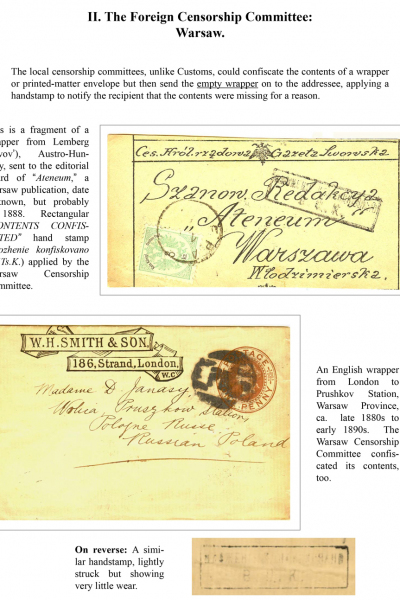 II. The Foreign Censorship Committee:
Warsaw.
The local censorship committees, unlike Customs, could confiscate the contents of a wrapper
or printed-matter envelope but then send the empty wrapper on to the addressee, applying a
handstamp to notify the recipient that the contents were missing for a reason.
s is a fragment of a
apper from Lemberg
vov'), Austro-Hun-
y, sent to the editorial
rd of "Ateneum," a
rsaw publication, date
known, but probably
1888. Rectangular
ONTENTS CONFIS-
TED" hand stamp
ozhenie konfiskovano
Ts.K.) applied by the
rsaw Censorship
mmittee.
Ces. Król. rządowa Gazeta Lwowska
Szanow. Redakcya
"Ateneum"
Warszawa
Włodzimierska.
W.H. SMITH & SON.
186, Strand, London.
W.C.
PENNY
Madame D. Janasz
Station
Pologne Russe
Russian Poland
An English wrapper
from London to
Prushkov Station,
Warsaw Province,
ca. late 1880s to
early 1890s. The
Warsaw Censorship
Committee confis-
cated its contents,
too.
On reverse: A simi-
lar handstamp, lightly
struck but showing
very little wear.